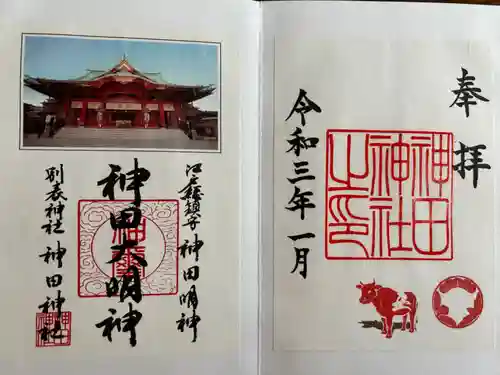 奉拝
神田神社之印
令和三年一月
江戸総鎮守 神田明神
神田大明神
別表神社 神田神社